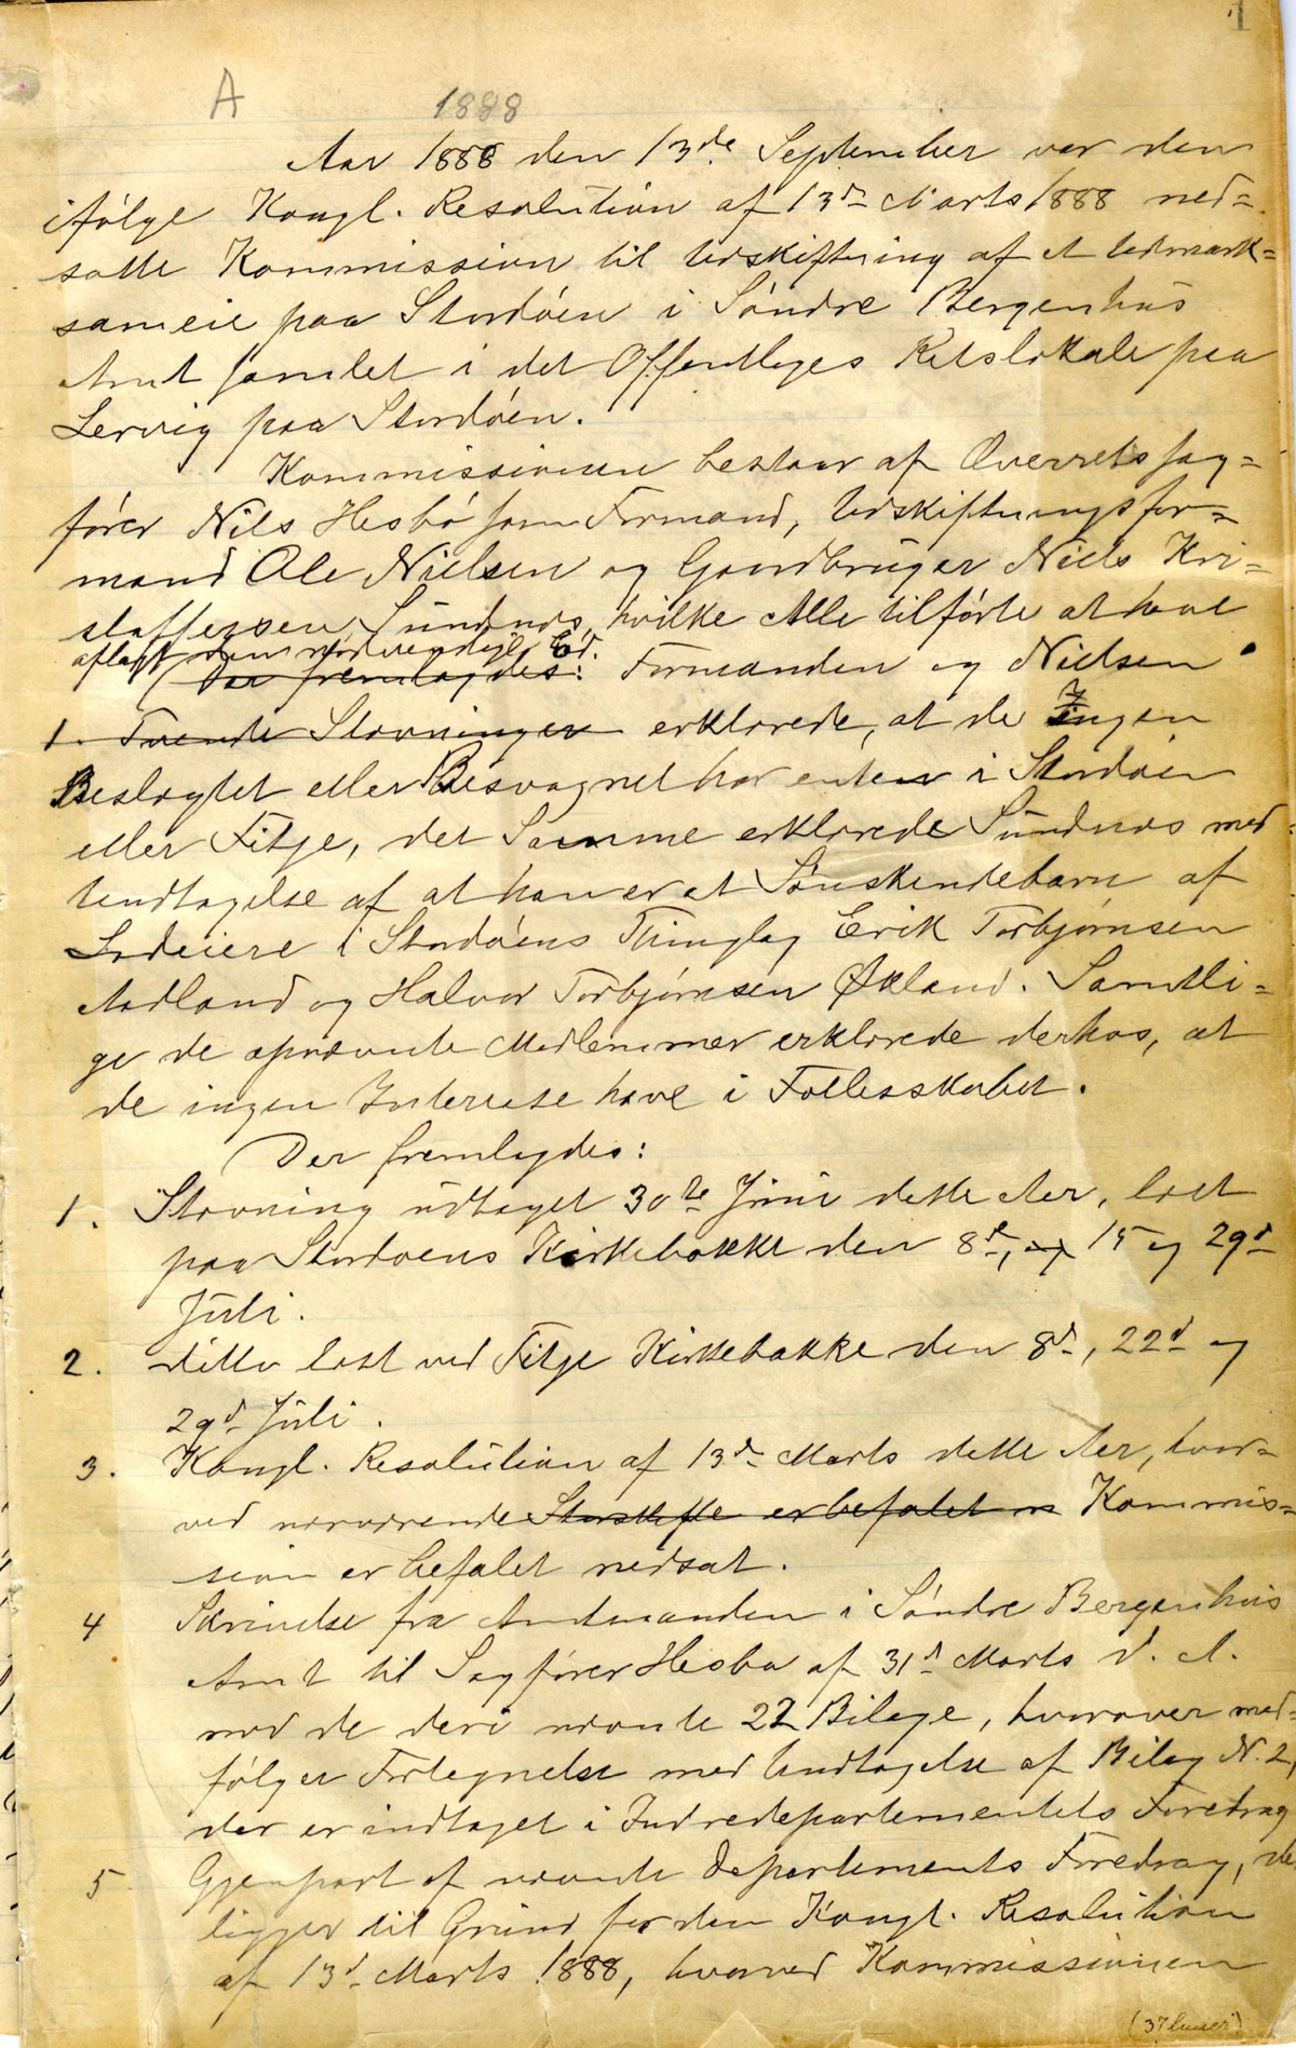 1
A 1888
Aar 1888 den 13de September var den
ifølge Kongl. Resolution af 13de Marts 1888 ned=
satte Kommission til Udskiftning af et Udmark=
sameie paa Stordøen i Søndre Bergenhus
Amt samlet i det Offentliges Retslokale paa
Lervig paa Stordøen.
Kommissionen bestaar af Overretssag=
fører Nils Hesbø som Formand, Udskiftningsfor=
mand Ole Nielsen og Gaardbruger Niels Kri=
stoffersen Sundnæs, hvilke Alle tilførte at have
aflagt den nødvendige Ed.
Der fremlagdes: Formanden og Nielsen
1. Tvende Stævninger erklærede, at de Ingen
Beslægtet eller Besvogret har enten i Stordøen
eller Fitje, det Samme erklærede Sundnæs med
Undtagelse af at han er et Sønskendebarn af
Lodeiere i Stordøens Thinglag Erik Torbjørnsen
Aadland og Halvor Torbjørnsen Økland. Samtli=
ge de opnævnte Medlemmer erklærede derhos, at
de ingen Interesse have i Fællesskabet.
Der fremlagdes:
1. Stævning udtaget 30te Juni dette Aar, læst
paa Stordøens Kirkebakke den 8de, og 15 og 29d
Juli.
2. ditto læst ved Fitje Kirkebakke den 8d, 22d og
29d Juli.
3. Kongl. Resolution af 13de Marts dette Aar, hvor=
ved nærværende Storskifte er befalet Kommis=
sion er befalet nedsat.
4 Skrivelse fra Amtmanden i Søndre Bergenhus
Amt til Sagfører Hesbø af 31d Marts d. A.
med de deri nævnte 22 Bilage, hvorover med=
følger Fortegnelse med Undtagelse af Bilag N. 2,
der er indtaget i Indredepartementets Foredrag
5 Gjenpart af nævnte Departements Foredrag, de
ligger til Grund for den Kongl. Resolution
af 13d Marts 1888, hvorved Kommissionen
(37 linier)